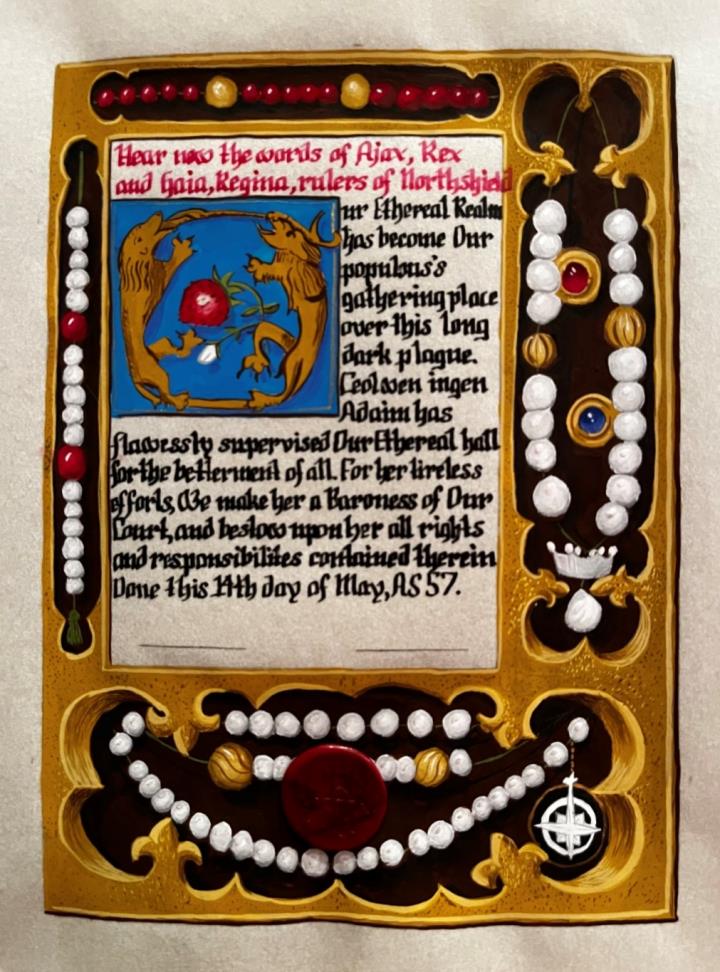 Hear now the words of Ajax, Rex
and Gaia, Regina, rulers of Northshield
ur Ethereal Realm
has become Our
populous's
gathering place
over this long
dark plague.
Ceolwen ingen
Adaim has
flawessly supervised Our Ethereal hall
for the betterment of all. For her tireless
efforts, We make her a Baroness of Our
Court, and bestow upon her all rights
and responsibilites contained therein
Done this 14th day of May, AS 57.